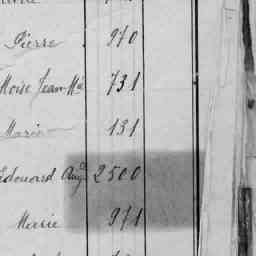 Pierre 970
Moïse Jean Me 731
Marie 131
Edouard Augte 2500
Mercie 971